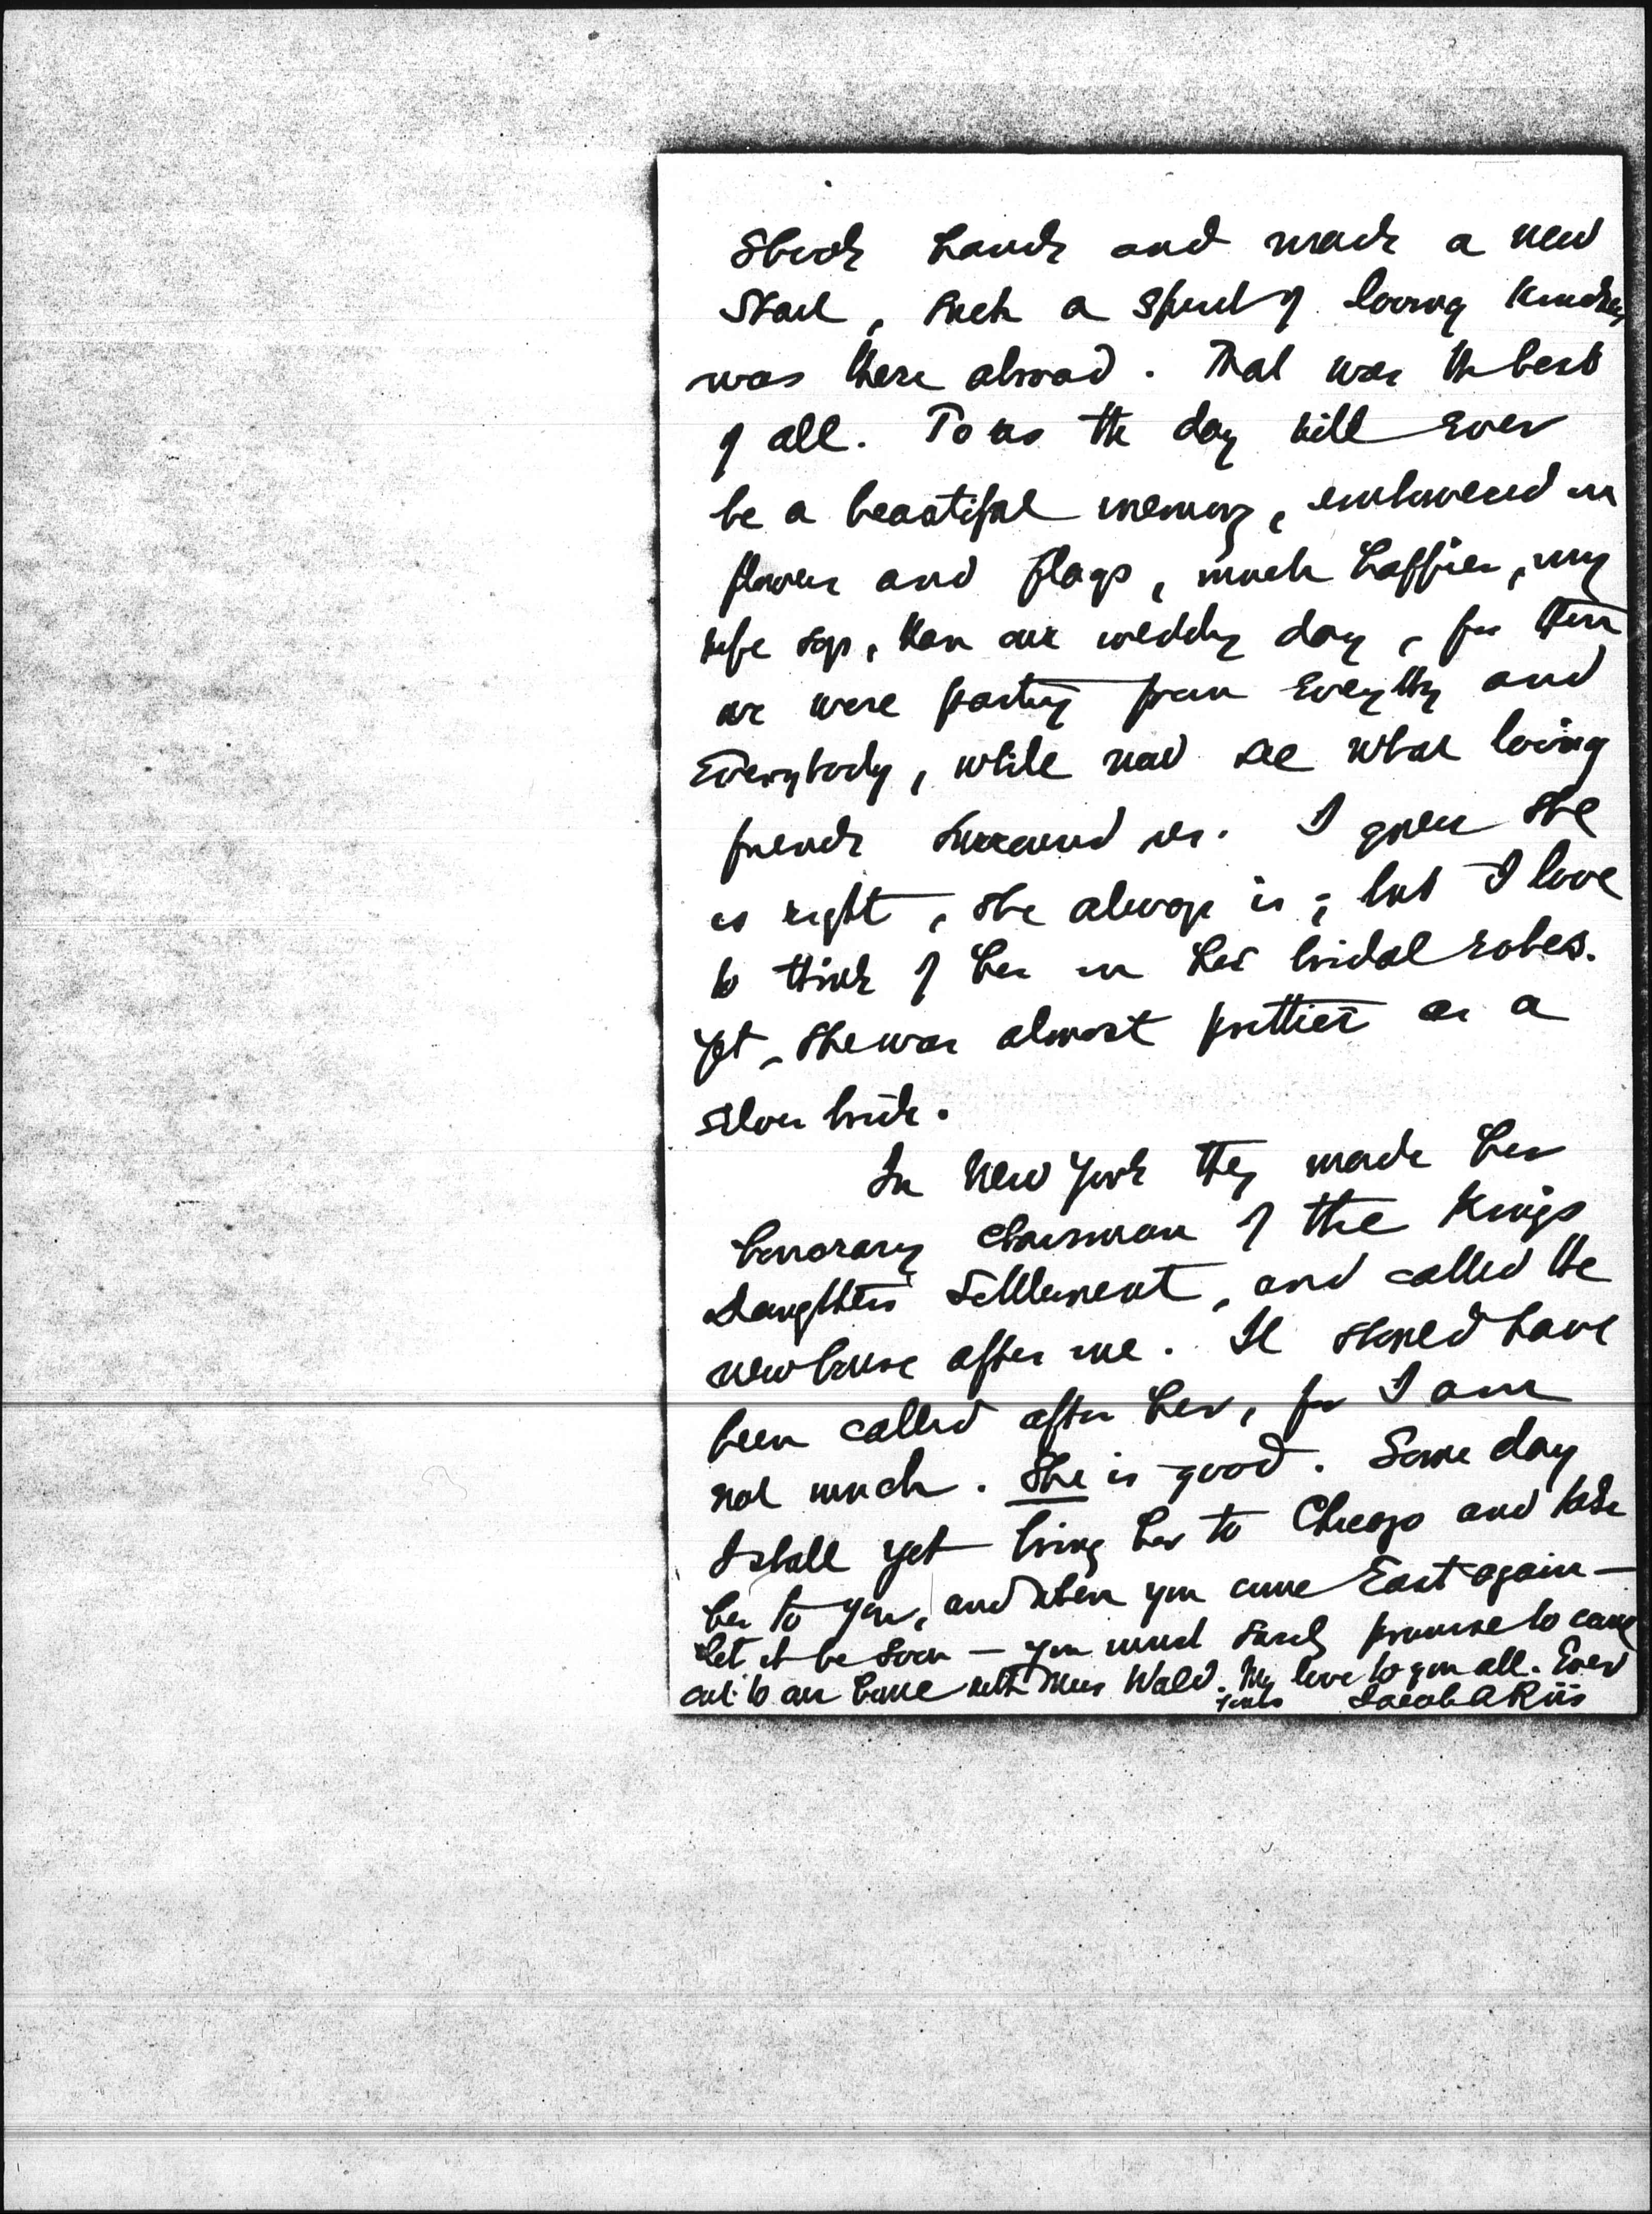 shook hands and made a new
start, such a spirit of loving kindness
was there abroad. That was the best
of all. To us the day will ever
be a beautiful memory, embowered in
flowers and flags, much happier, my
wife says, than our wedding day, for then
we were parting from everything and
everybody, while now see what loving
friends surround us. I guess she
is right, she always is; but I love
to think of her in her bridal robes.
Yet, she was almost prettier as a
silver bride.
In New York they made her
honorary chairman of the Kings
Daughters' Settlement, and called the
new house after me. It should have
been called after her, for I am
not much. She is good. Some day
I shall yet bring her to Chicago and take
her to you, and when you come East again —
let it be soon — you must surely promise to come
out to our home with Miss Wald. My love to you all. Ever
yours Jacob A Riis